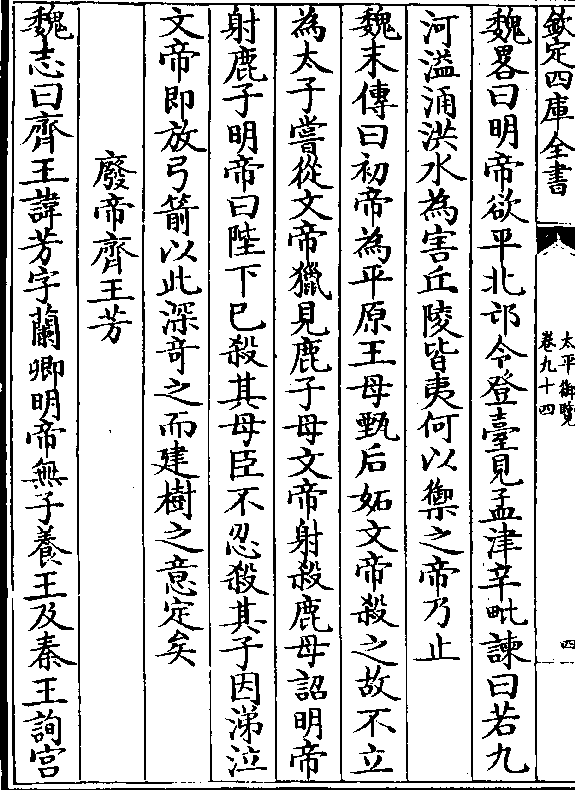 欽定四庫全書
太平御覽
卷九十四
四
魏畧曰明帝欲平北邙令登臺見孟津辛毗諫曰若九
河溢涌洪水為害丘陵皆夷何以禦之帝乃止
魏末傳曰初帝為平原王母甄后妬文帝殺之故不立
為太子嘗從文帝獵見鹿子母文帝射殺鹿母詔明帝
射鹿子明帝曰陛下已殺其母臣不忍殺其子因涕泣
文帝即放弓箭以此深竒之而建樹之意定矣
廢帝齊王芳
魏志曰齊王諱芳字蘭卿明帝無子養王及秦王詢宫